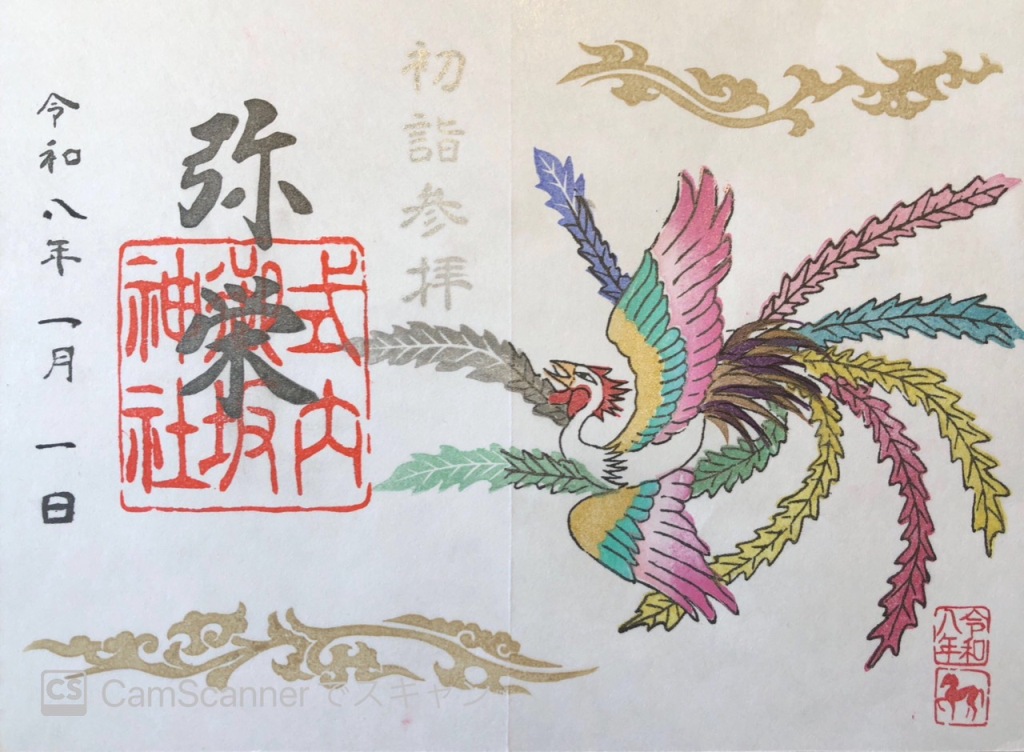 初詣参拝
弥栄
式内
坂
神社
令和八年一月一日
令和
八年
CS CamScanner でスキャン